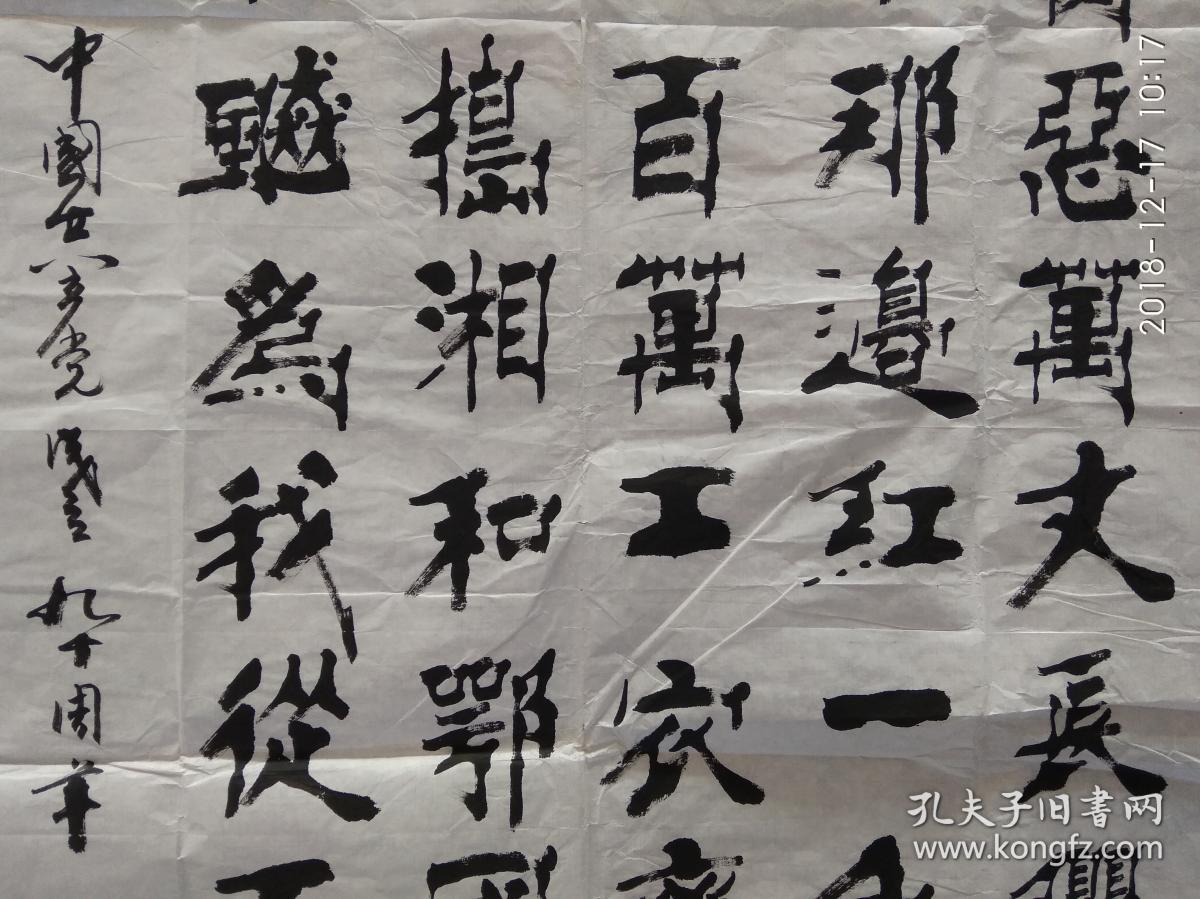 惡萬丈長
那邊紅一
百萬工农
搗湘和鄂
飆為我從
中國共產党成立九十周年
2018-12-17 10:17
孔夫子旧书网
www.kongfz.com